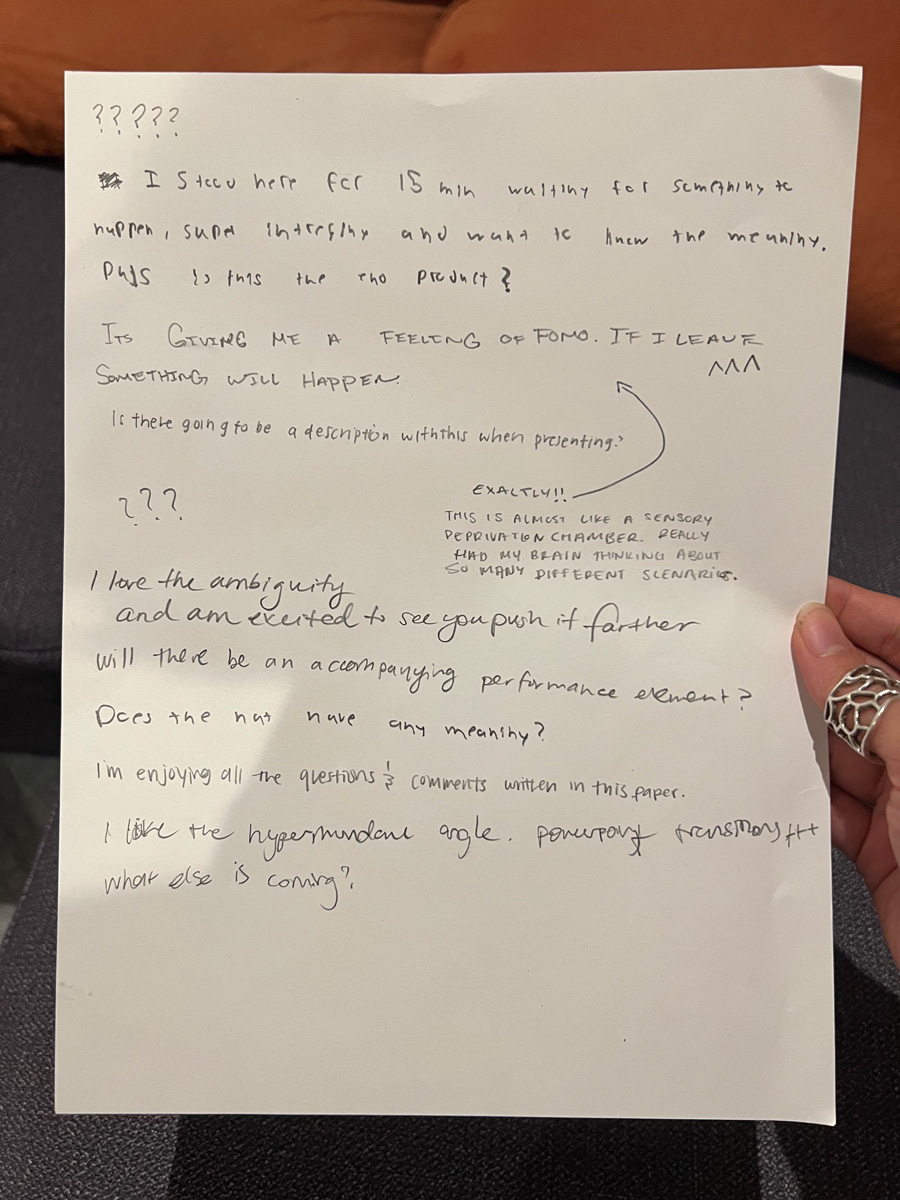 ?????
I stood here for 15 min waiting for something to
happen, super intresting and want to know the meaning.
Plus is this the end product?
ITS GIVING ME A FEELING OF FOMO. IF I LEAVE
SOMETHING WILL HAPPEN.
^^^
Is there going to be a description with this when presenting?
???
EXACTLY!!
THIS IS ALMOST LIKE A SENSORY
DEPRIVATION CHAMBER. REALLY
HAD MY BRAIN THINKING ABOUT
SO MANY DIFFERENT SCENARIOS.
I love the ambiguity
and am excited to see you push it farther
will there be an accompanying performance element?
Does the hat have any meaning?
I'm enjoying all the questions & comments written in this paper.
I like the hypermundane angle. powerpoint transitions +++
what else is coming?